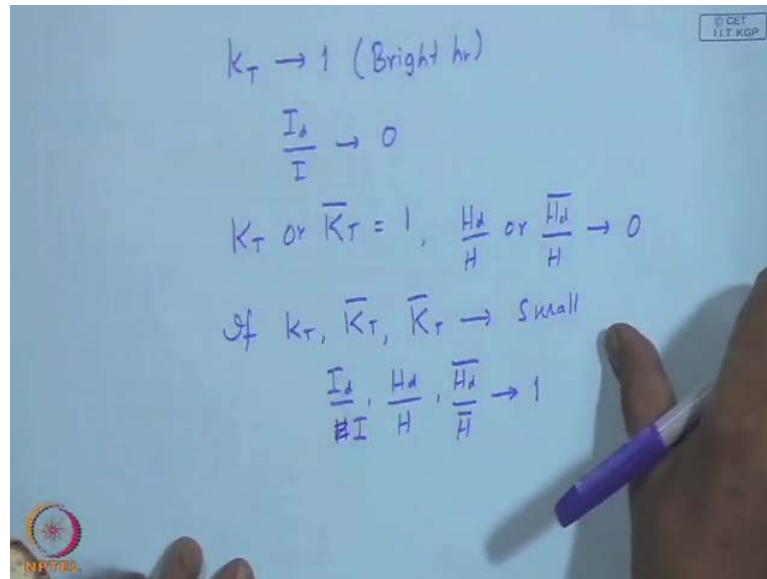 © CET
I.I.T. KGP
k_T → 1 (Bright hr)
I_d / I → 0
K_T or K̅_T = 1, H_d / H or H̅_d / H → 0
If k_T, K̅_T, K̅_T → Small
I_d / I, H_d / H, H̅_d / H̅ → 1
NPTEL